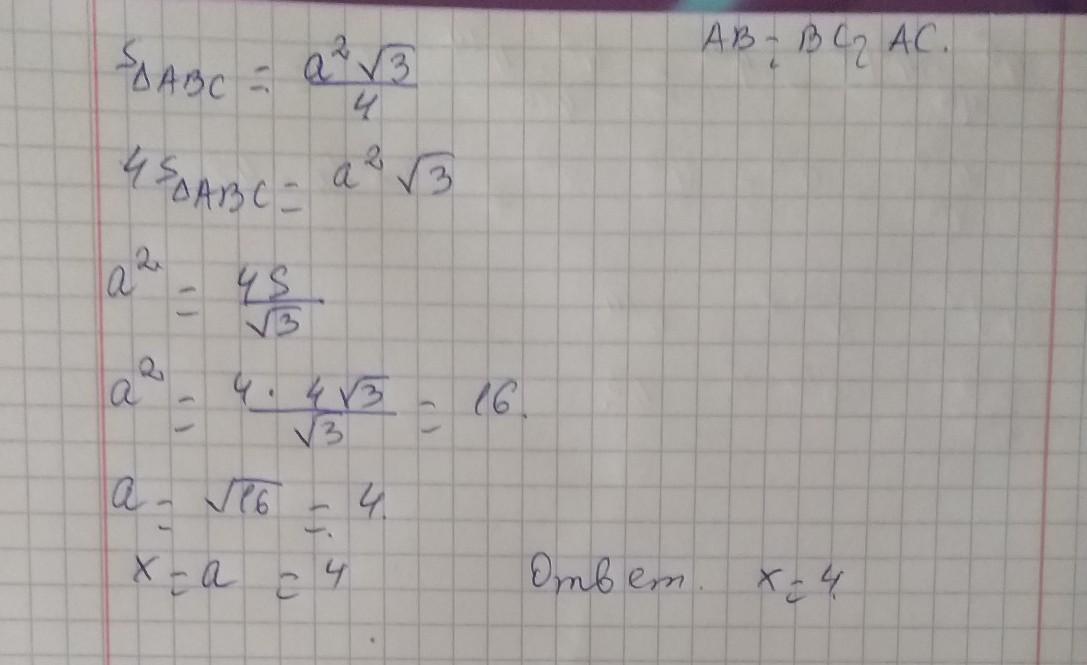 AB = BC = AC.
S△ABC = a²√3/4
4S△ABC = a²√3
a² = 4S/√3
a² = 4 · 4√3/√3 = 16.
a = √16 = 4.
x = a = 4
Ответ. x = 4.